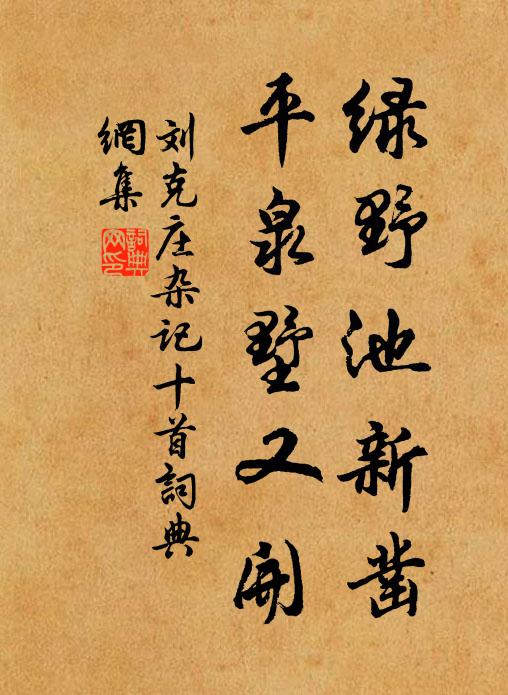 绿野池新凿
平泉墅又開
刘克庄杂记十首詞典
網集
詞典
网印